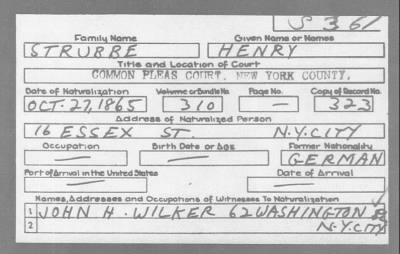 S 361
Family Name Given Name or Names
STRUBBE HENRY
Title and Location of Court
COMMON PLEAS COURT, NEW YORK COUNTY.
Date of Naturalization Volume or Bundle No. Page No. Copy of Record No.
OCT. 27, 1865 310 — 323
Address of Naturalized Person
16 ESSEX ST. N.Y. CITY
Occupation Birth Date or Age Former Nationality
— — GERMAN
Port of Arrival in the United States Date of Arrival
— —
Names, Addresses and Occupations of Witnesses To Naturalization
1 JOHN H. WILKER 62 WASHINGTON
2 N.Y. CITY